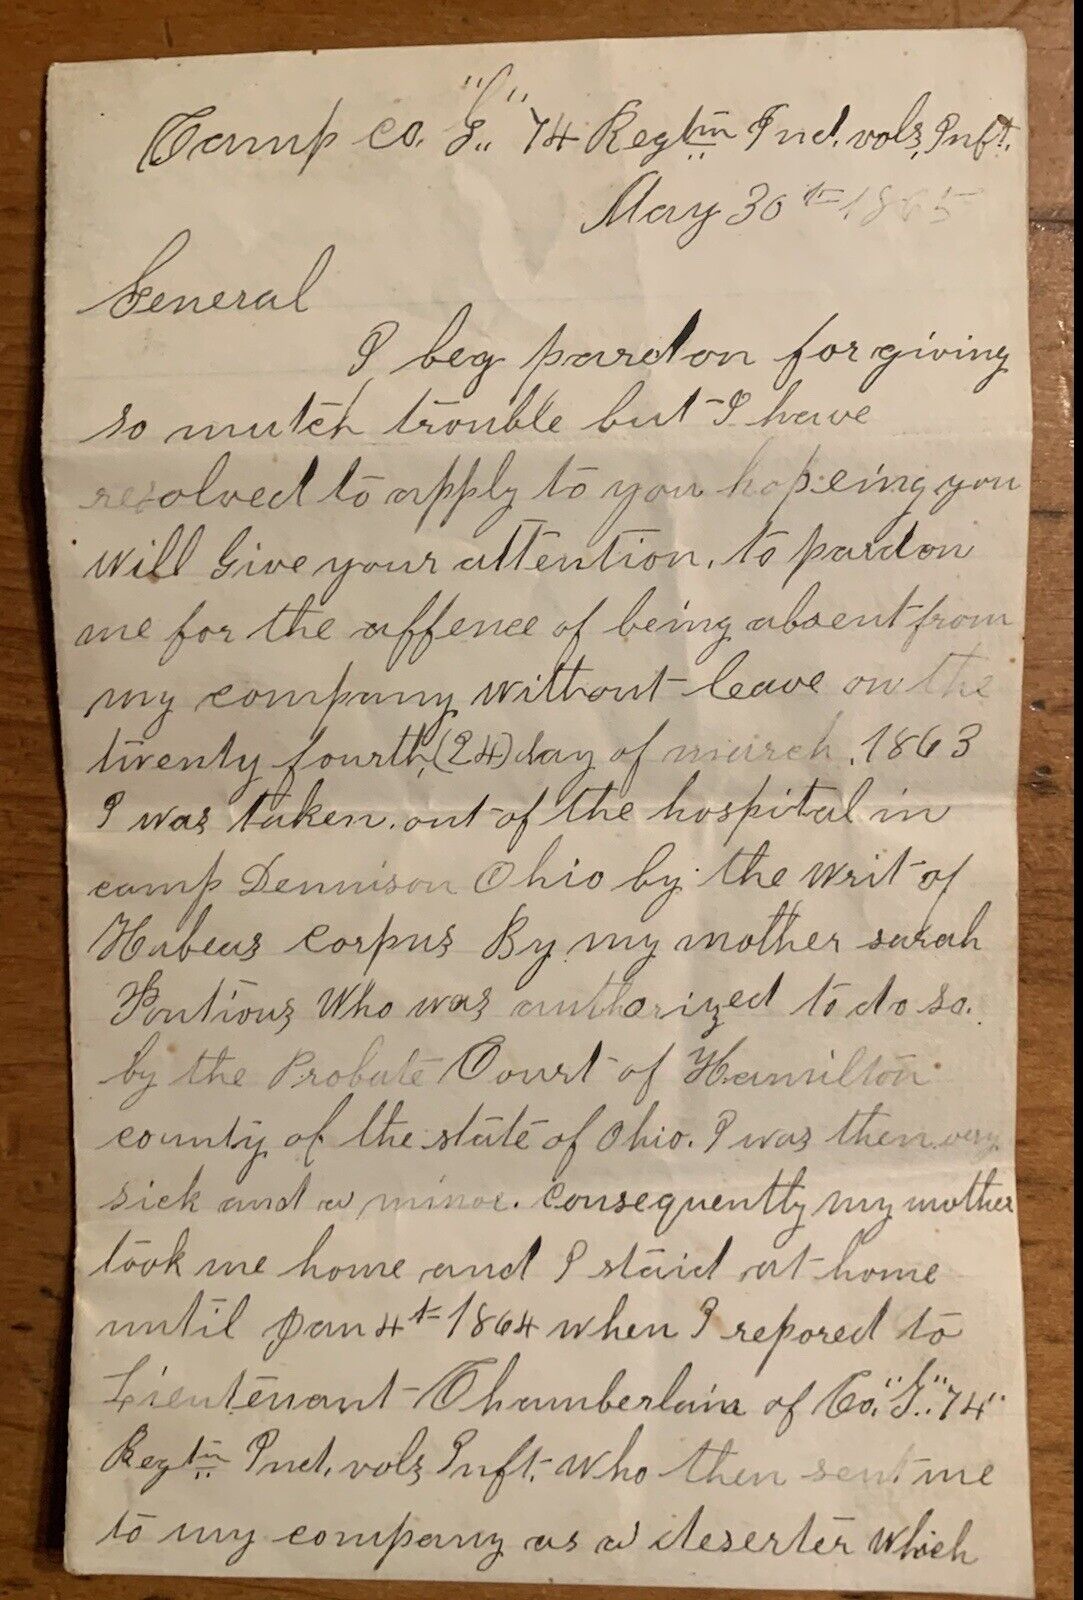 Camp Co. "G" 74 Regtm Ind. vols, Inft.
May 30th 1865
General
I beg pardon for giving
so mutch trouble but I have
resolved to apply to you hopeing you
will Give your attention, to pardon
me for the affence of being absent from
my company without leave on the
twenty fourth, (24) day of march, 1863
I was taken out of the hospital in
camp Dennison Ohio by the writ of
Habeas corpus By my mother sarah
Pontious Who was authorized to do so.
by the Probate Court of Hamilton
county of the state of Ohio. I was then very
sick and a minor. Consequently my mother
took me home and I staid at home
until Jan 4th 1864 when I repored to
Lieutenant Chamberlain of Co. "G" 74"
Regtm Ind. vols Inft. Who then sent me
to my company as a deserter which